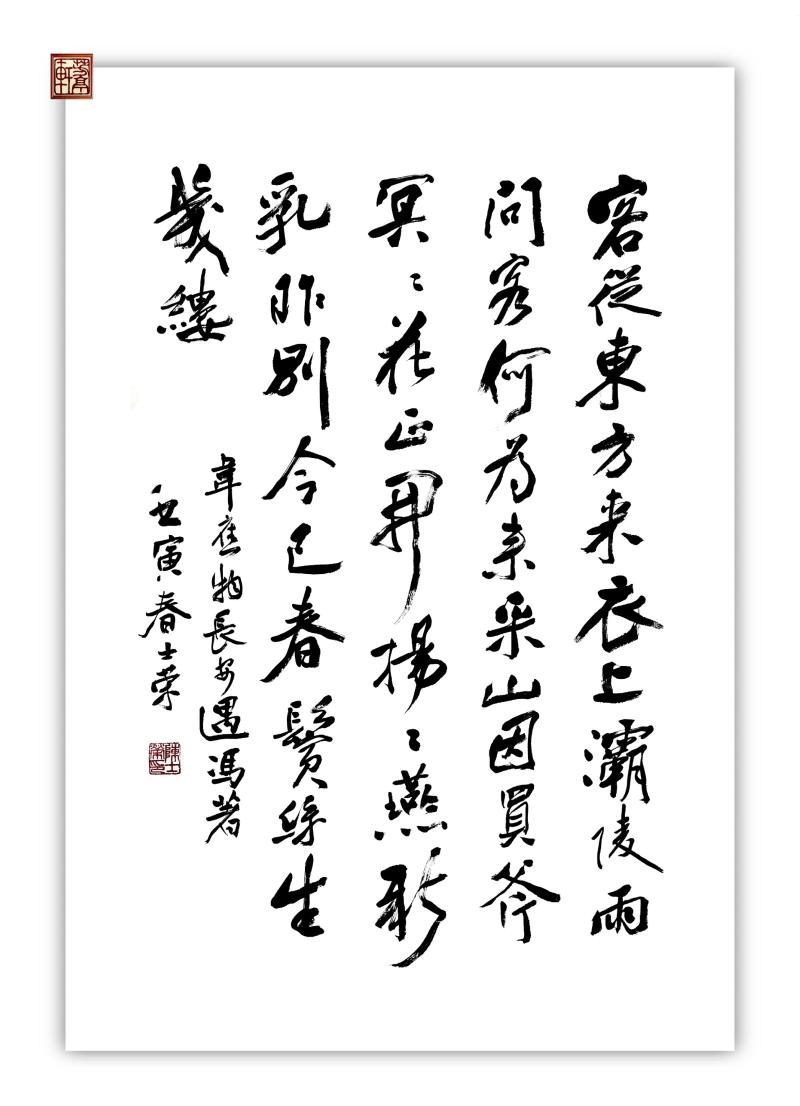 客從東方来衣上灞陵雨
问客何为来采山因買斧
冥〻花正開揚〻燕新
乳昨别今已春鬢絲生
幾縷
韋應物長安遇馮著
壬寅春士荣
陳士榮印